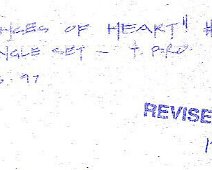 NGES OF HEART"
NGLE SET - T. PRO
97
REVISE